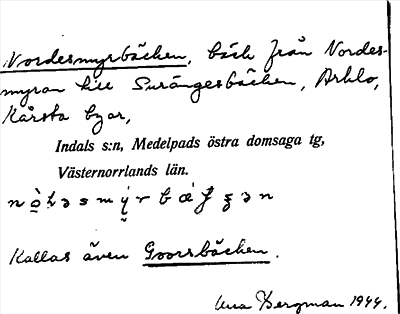 Nordesmyrbäcken, bäck från Nordes-
myran till Surängesbäcken, Arklo,
Kårsta byar,
Indals s:n, Medelpads östra domsaga tg,
Västernorrlands län.
Kallas även Goorsbäcken.
Una Bergman 1944.